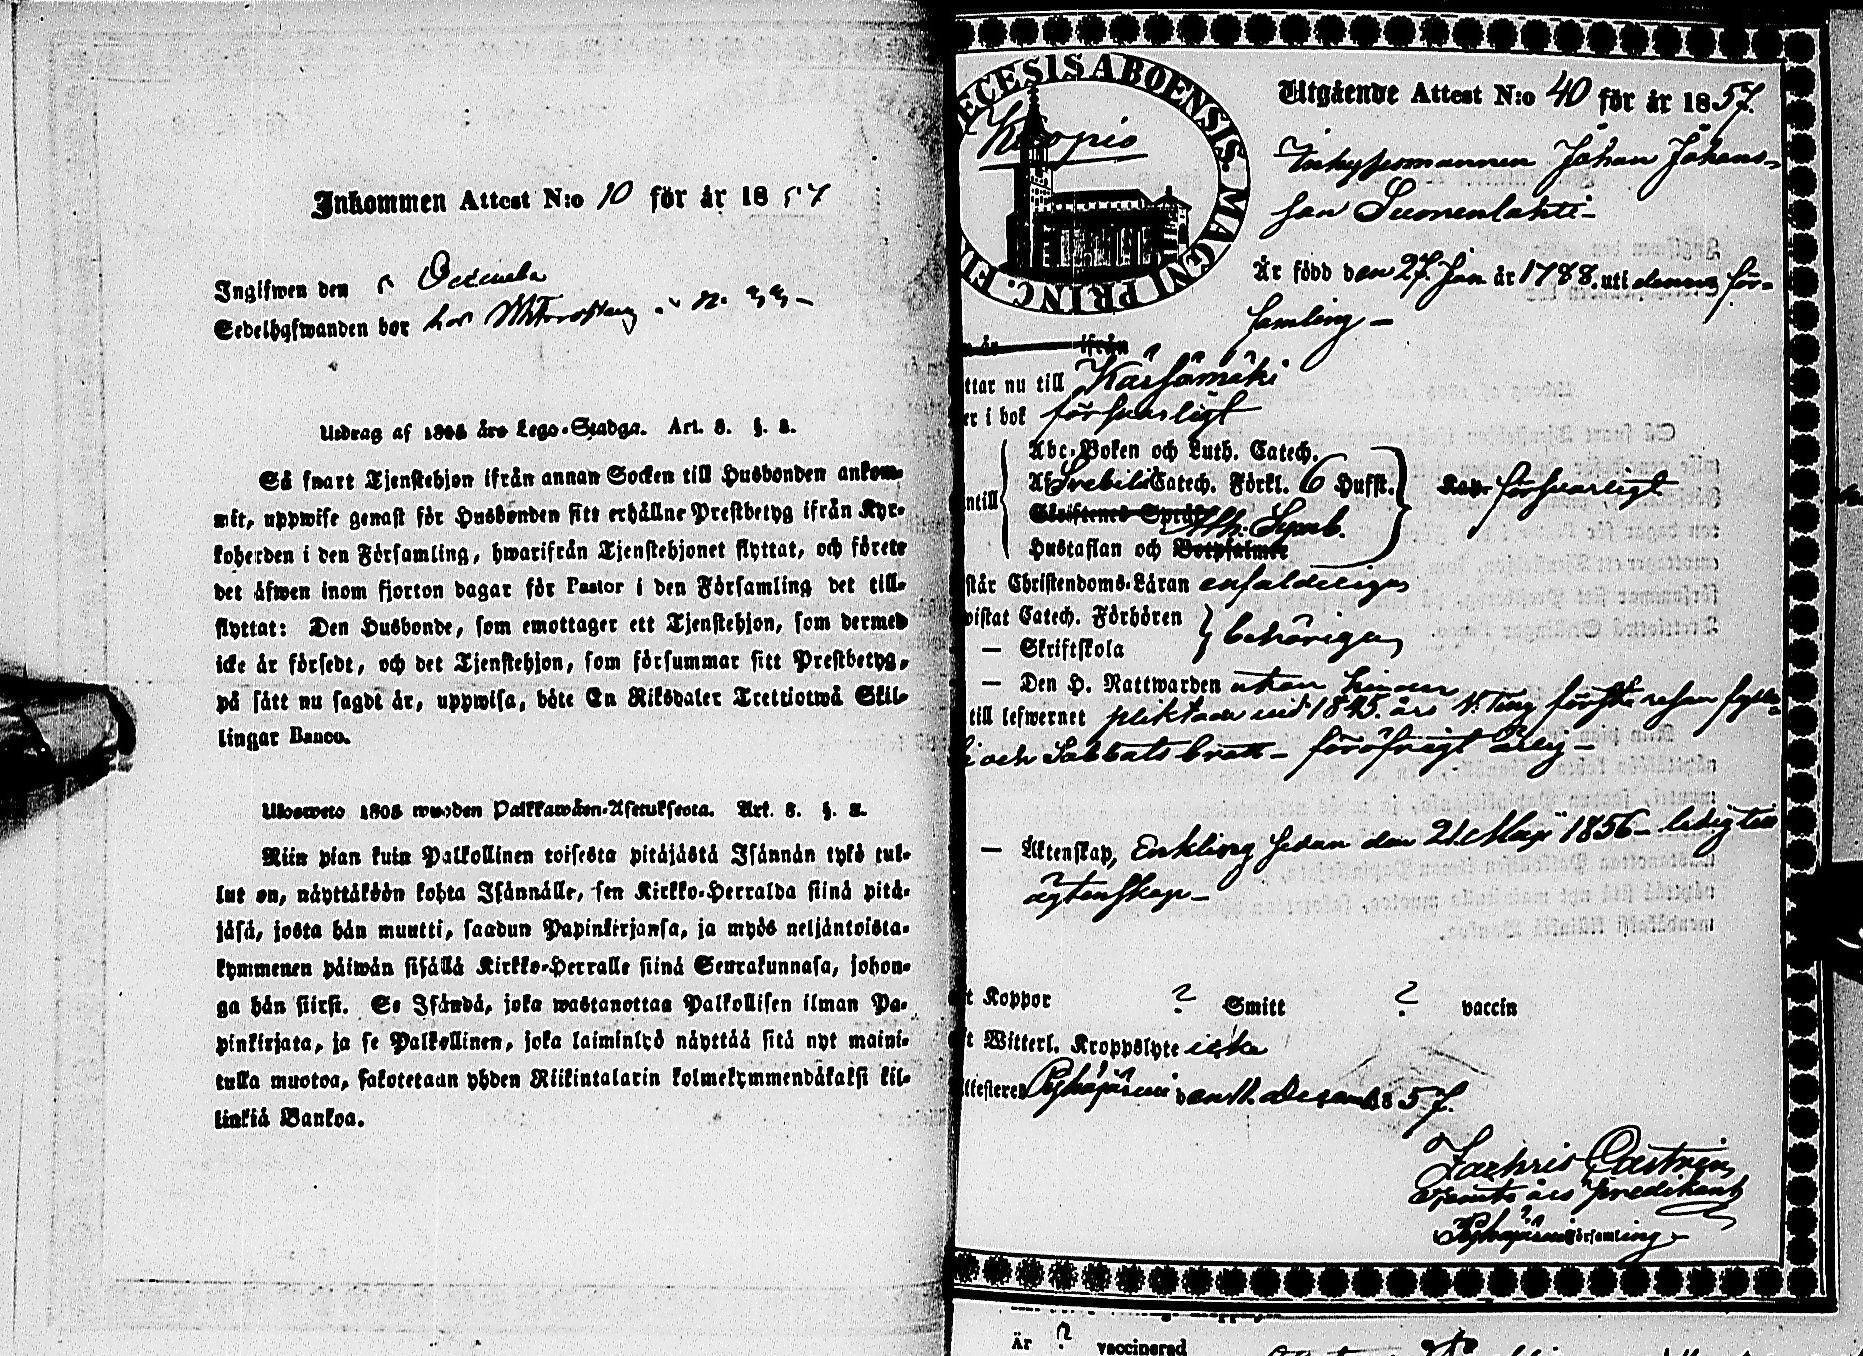 Inkommen Attest N:o 10 för år 1857
Ingifwen den
Sedelhafwanden bor hos
Utdrag af 1805 års Lego-Stadga. Art. 3. §. 2.
Så snart Tjenstehjon ifrån annan Socken till Husbonden ankom-
mit, uppwise genast för Husbonden sitt erhållne Prestbetyg ifrån Kyr-
koherden i den Församling, hwarifrån Tjenstehjonet flyttat, och förete
det äfwen inom fjorton dagar för Pastor i den Församling det till-
flyttat: Den Husbonde, som emottager ett Tjenstehjon, som dermed
icke är försedt, och det Tjenstehjon, som försummar sitt Prestbetyg,
på sätt nu sagdt är, uppwisa, böte En Riksdaler Trettiotwå Skil-
lingar Banco.
Ulosweto 1805 wuoden Palkkawäen-Asetuksesta. Art. 3. §. 2.
Niin pian kuin Palkollinen toisesta pitäjästä Isännän tykö tul-
lut on, näyttäköön kohta Isännälle, sen Kirkko-Herralda siinä pitä-
jäsä, josta hän muutti, saadun Papinkirjansa, ja myös neljäntoista-
kymmenen päiwän sisällä Kirkko-Herralle siinä Seurakunnasa, johon-
ga hän siirsi. Se Isändä, joka wastanottaa Palkollisen ilman Pa-
pinkirjata, ja se Palkollinen, joka laiminlyö näyttää sitä nyt maini-
tulla muotoa, sakotetaan yhden Riikintalarin kolmekymmendäkaksi kil-
linkiä Bankoa.
ECESIS ABOENSIS. MAGNI PRINC. F
Utgående Attest N:o 40 för år 1857.
Inhysesmannen Johan Johans-
son Suonenlahti-
Är född den 27. Jan. år 1788. uti denna för-
samling -
ifrån
ttar nu till Kärsämäki
er i bok försvarligt
Abc-Boken och Luth. Catech.
Af Svebilii Catech. Förkl. 6 Hufst. försvarligt
ntill
Ath. Symb.
Hustaflan och Botpsalmer
står Christendoms-Läran enfaldeligen
wistat Catech. Förhören
behörigen
— Skriftskola
— Den H. Nattwarden utan hinder
till lefwernet pliktade vid 1845. års V. Ting första resan fylle-
i och Sabbatsbrott - föröfrigt ärlig -
— Äktenskap, Enkling sedan den 21. Maji 1856 - ledig till
ägtenskap -
t Koppor ? Smitt ? vaccin
t Witterl. Kroppslyte icke
ttesteres Pyhäjärvi den 11. Decemb. 1857.
Zachris Castrén
predikant
Pyhäjärvi Församling -
Är ? vaccinerad